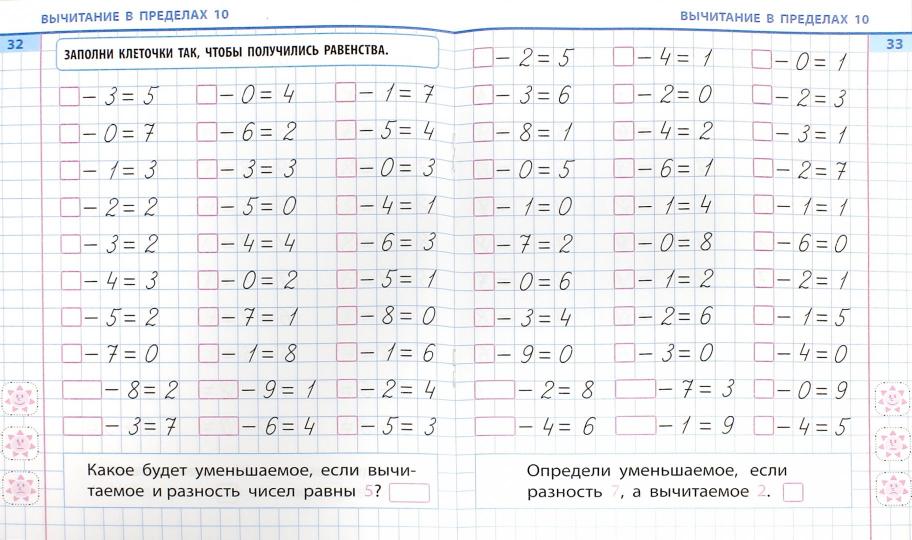 ВЫЧИТАНИЕ В ПРЕДЕЛАХ 10
32
ЗАПОЛНИ КЛЕТОЧКИ ТАК, ЧТОБЫ ПОЛУЧИЛИСЬ РАВЕНСТВА.
□ – 3 = 5 □ – 0 = 4 □ – 1 = 7
□ – 0 = 7 □ – 6 = 2 □ – 5 = 4
□ – 1 = 3 □ – 3 = 3 □ – 0 = 3
□ – 2 = 2 □ – 5 = 0 □ – 4 = 1
□ – 3 = 2 □ – 4 = 4 □ – 6 = 3
□ – 4 = 3 □ – 0 = 2 □ – 5 = 1
□ – 5 = 2 □ – 7 = 1 □ – 8 = 0
□ – 7 = 0 □ – 1 = 8 □ – 1 = 6
□ – 8 = 2 □ – 9 = 1 □ – 2 = 4
□ – 3 = 7 □ – 6 = 4 □ – 5 = 3
Какое будет уменьшаемое, если вычи-
таемое и разность чисел равны 5? □
ВЫЧИТАНИЕ В ПРЕДЕЛАХ 10
33
□ – 2 = 5 □ – 4 = 1 □ – 0 = 1
□ – 3 = 6 □ – 2 = 0 □ – 2 = 3
□ – 8 = 1 □ – 4 = 2 □ – 3 = 1
□ – 0 = 5 □ – 6 = 1 □ – 2 = 7
□ – 1 = 0 □ – 1 = 4 □ – 1 = 1
□ – 7 = 2 □ – 0 = 8 □ – 6 = 0
□ – 0 = 6 □ – 1 = 2 □ – 2 = 1
□ – 3 = 4 □ – 2 = 6 □ – 1 = 5
□ – 9 = 0 □ – 3 = 0 □ – 4 = 0
□ – 2 = 8 □ – 7 = 3 □ – 0 = 9
□ – 4 = 6 □ – 1 = 9 □ – 4 = 5
Определи уменьшаемое, если
разность 7, а вычитаемое 2. □